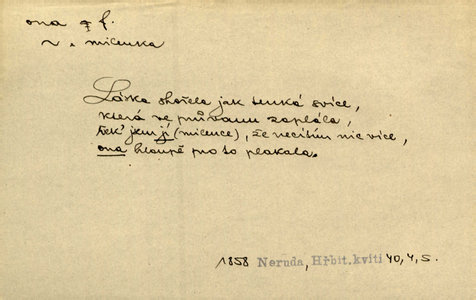 ona f.
v. milenka
Láska shořela jak tenká svíce,
která ve průvanu zaplála,
řek' jsem jí (milence), že necítím nic více,
ona hloupě pro to plakala.
1858 Neruda, Hřbit. kvítí 40,4,5.